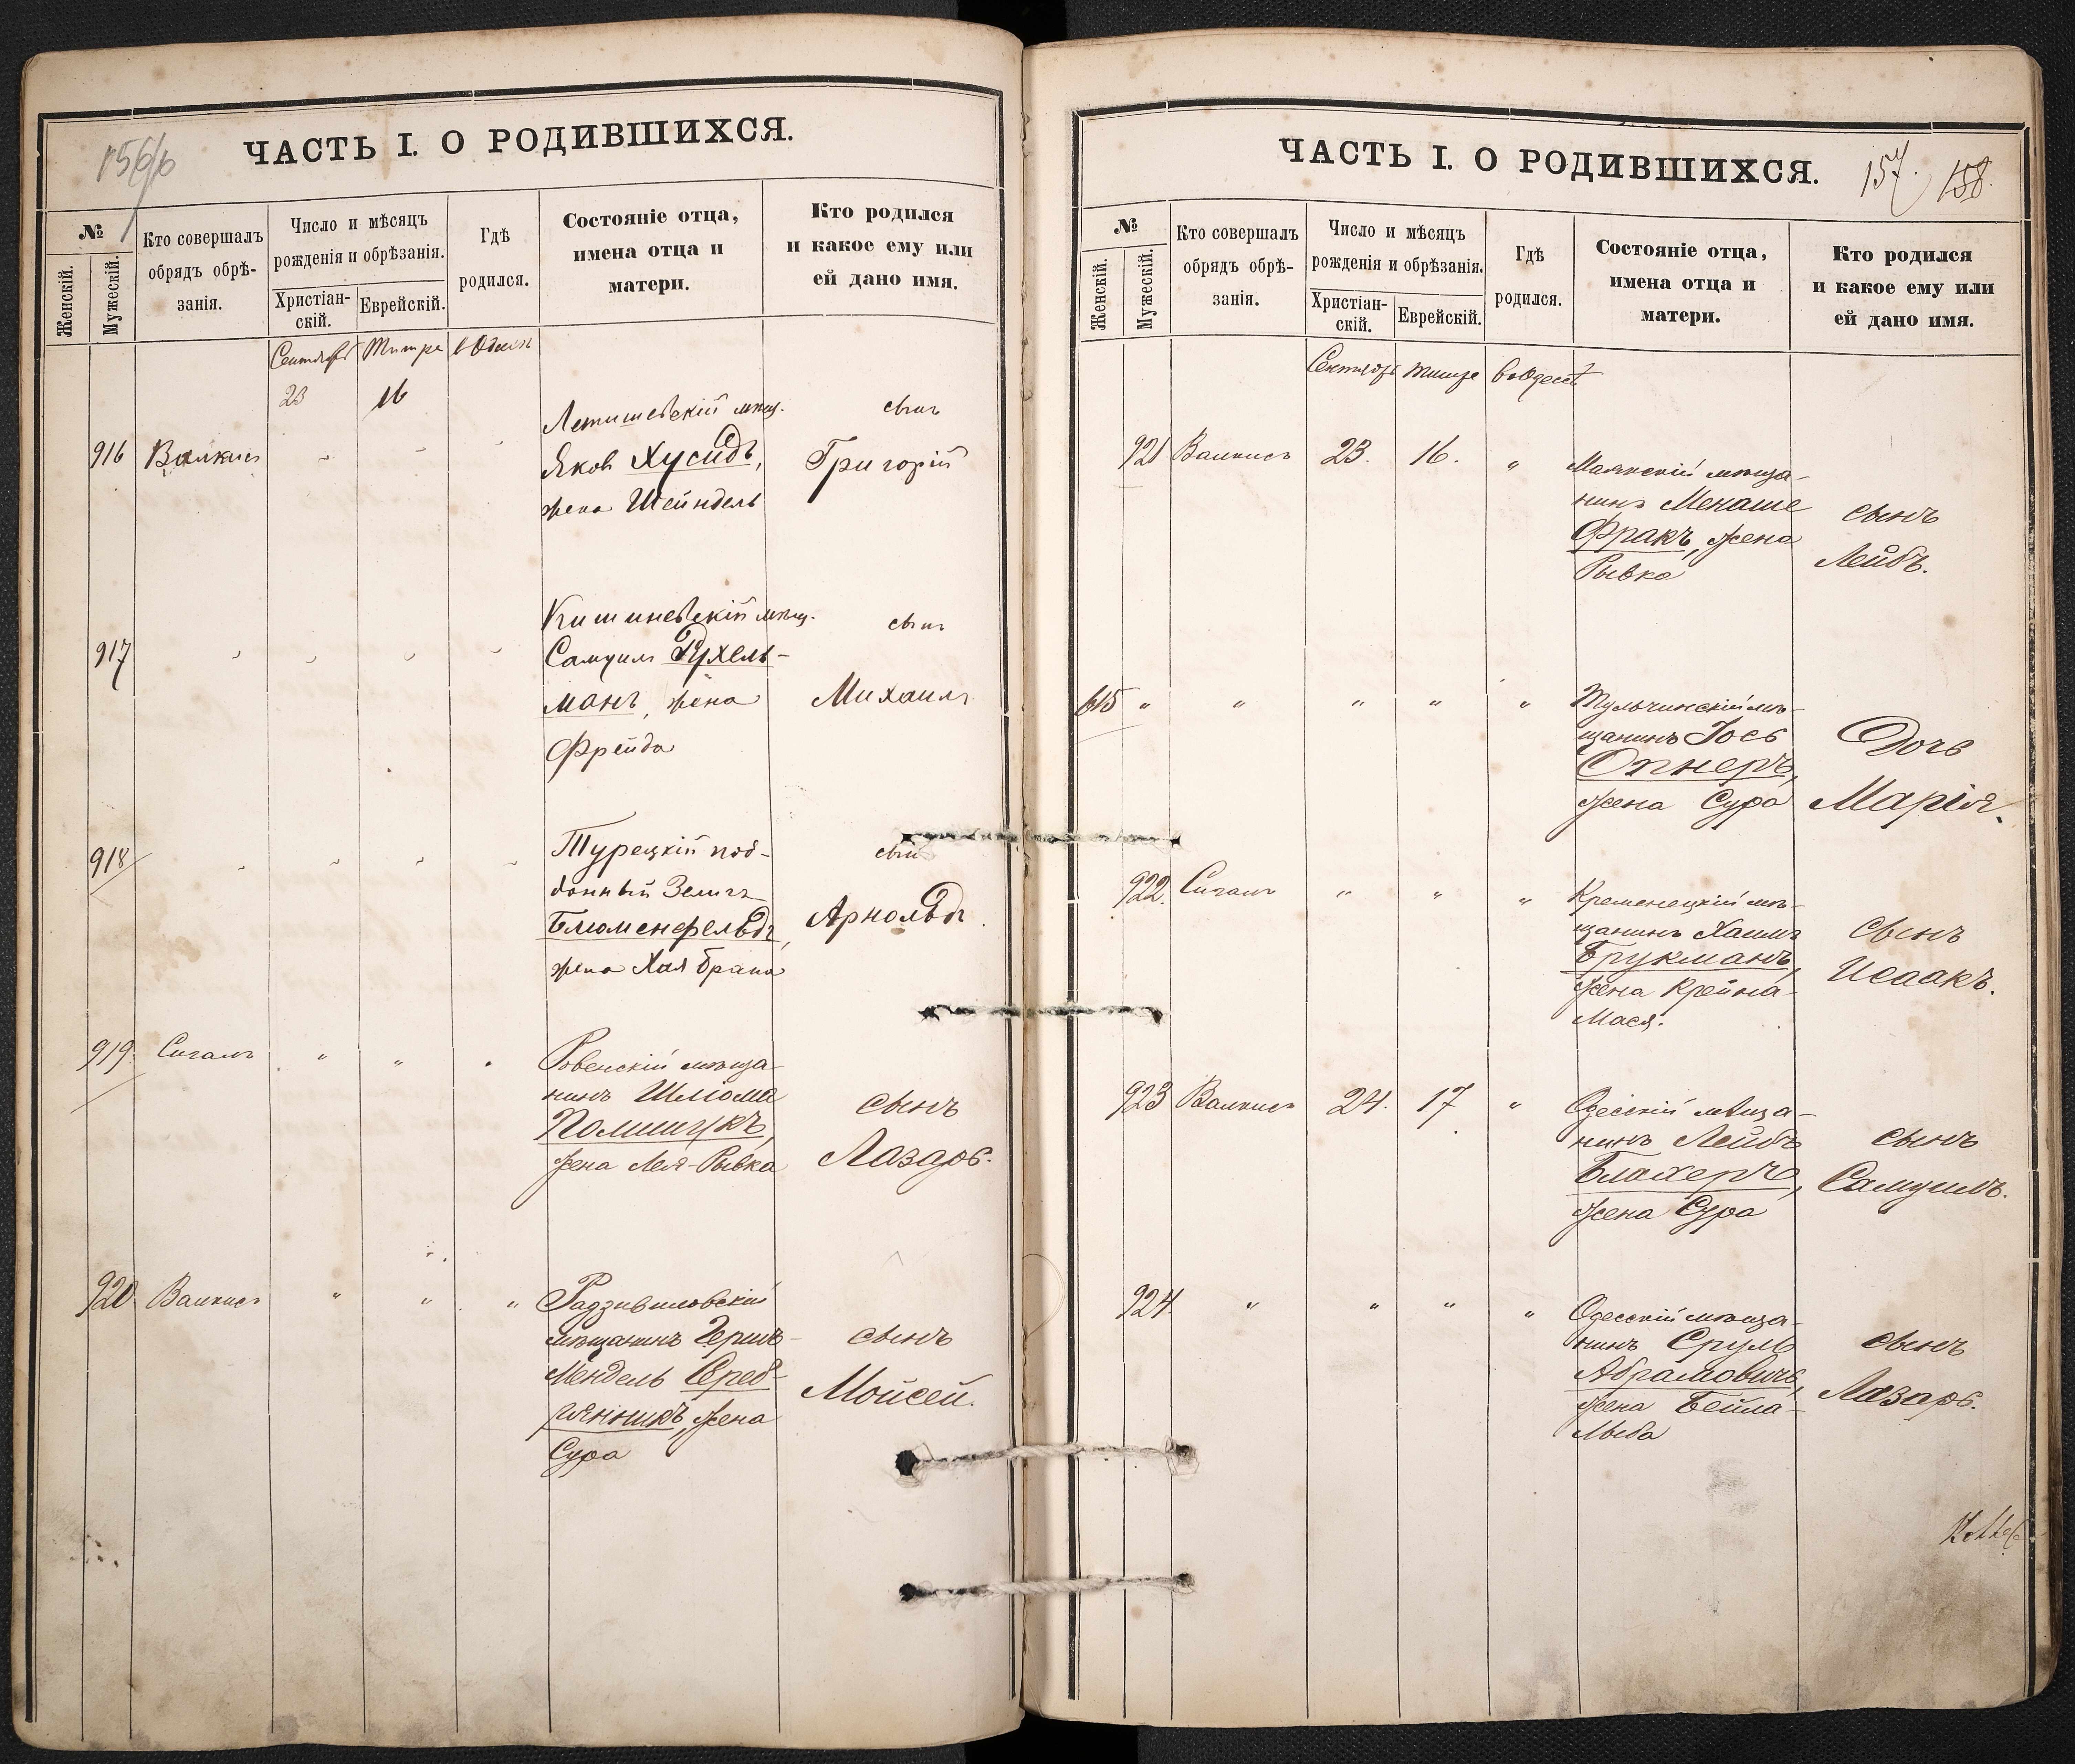 156/б
ЧАСТЬ I. О РОДИВШИХСЯ.
№
Женскій.
Мужескій.
Кто совершалъ
обрядъ обрѣ-
занія.
Число и мѣсяцъ
рожденія и обрѣзанія.
Христіан-
скій.
Еврейскій.
Гдѣ
родился.
Состояніе отца,
имена отца и
матери.
Кто родился
и какое ему или
ей дано имя.
Сентябрь Тишре в Одессѣ
23 16
916 Валкисъ " " "
Летишевскій мѣщ.
Яковъ Хусидъ,
жена Шейндель
сынъ
Григорій
917 " " " "
Кишиневскій мѣщ.
Самуилъ Рухель-
манъ, жена
Фрейда
сынъ
Михаилъ
918 " " " "
Турецкій под-
данный Зелигъ
Блюменфельдъ,
жена Хая Брана
сынъ
Арнольдъ
919 Сигалъ " " "
Ровенскій мѣща-
нинъ Шліома
Полищукъ,
жена Лея-Рывка
сынъ
Лазарь.
920 Валкисъ " " "
Радзивиловскій
мѣщанинъ Гершъ-
Мендель Среб-
рянникъ, жена
Сура
сынъ
Мойсей.
ЧАСТЬ I. О РОДИВШИХСЯ.
157. 158.
№
Женскій.
Мужескій.
Кто совершалъ
обрядъ обрѣ-
занія.
Число и мѣсяцъ
рожденія и обрѣзанія.
Христіан-
скій.
Еврейскій.
Гдѣ
родился.
Состояніе отца,
имена отца и
матери.
Кто родился
и какое ему или
ей дано имя.
Сентябрь Тишре в Одессѣ
921 Валкисъ 23. 16. "
Маякскій мѣща-
нинъ Менаше
Фракъ, жена
Рывка
сынъ
Лейбъ.
615 " " " " "
Тульчинскій мѣ-
щанинъ Іось
Опнеръ,
жена Сура
Дочь
Марія.
922. Сигалъ " " "
Кременецкій мѣ-
щанинъ Хаимъ
Брукманъ,
жена Крейна-
Мася.
сынъ
Исаакъ.
923 Валкисъ 24. 17 "
Одесскій мѣща-
нинъ Лейбъ
Блахеръ,
жена Сура
сынъ
Самуилъ.
924 " " " "
Одесскій мѣща-
нинъ Сруль
Абрамовичъ,
жена Бейла-
Люба
сынъ
Лазарь.